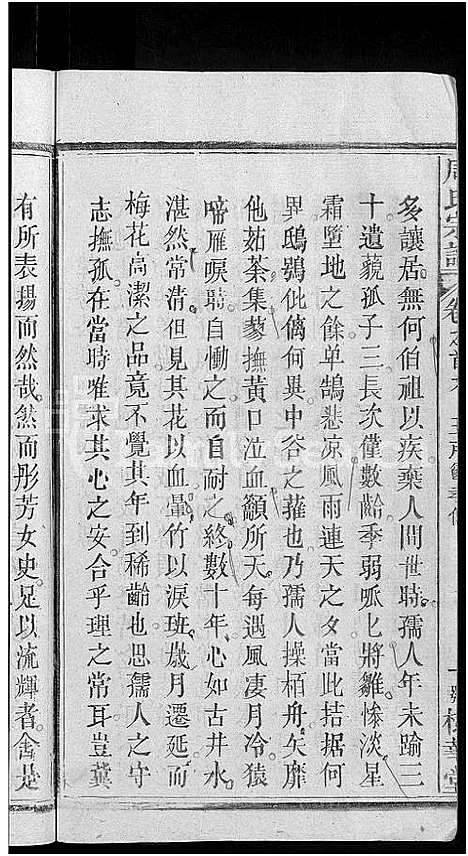 多讓居無何伯祖以疾棄人間世時孺人年未踰三
十遺藐孤子三長次僅數齡季弱呱匕將雛慘淡星
霜墮地之餘单鵠悲凉風雨連天之夕當此拮据何
異鴟鴞仳儷何與中谷之蓷也乃孺人操栢舟矢靡
他茹荼集蓼撫黃口泣血籲所天每遇風凄月冷猿
啼雁唳時自慟之而自耐之終數十年心如古井水
湛然常清但見其花以血暈竹以淚班歲月遷延而
梅花高潔之品竟不覺其年到稀齡也思孺人之守
志撫孤在當時唯求其心之安合乎理之常耳豈冀
有所表揚而然哉然而彤芳女史足以流輝者舍是
周氏宗譜 卷之首